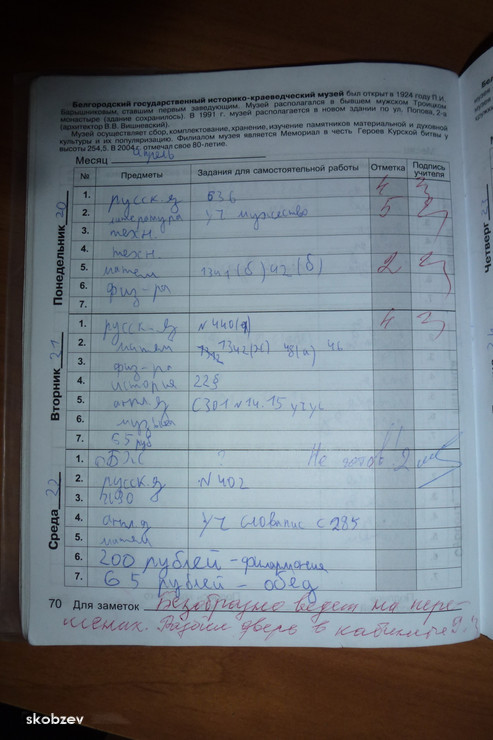 Белгородский государственный историко-краеведческий музей был открыт в 1924 году П.И.
Барышниковым, ставшим первым заведующим. Музей располагался в бывшем мужском Троицком
монастыре (здание сохранилось). В 1991 г. музей располагается в новом здании по ул. Попова, 2-а
(архитектор В.В. Вишневский).
Музей осуществляет сбор, комплектование, хранение, изучение памятников материальной и духовной
культуры и их популяризацию. Филиалом музея является Мемориал в честь Героев Курской битвы у
высоты 254,5. В 2004 г. отмечал свое 80-летие.
Месяц апрель
№ Предметы Задания для самостоятельной работы Отметка Подпись учителя
Понедельник 20
1. русск.я 636 4
2. литература уч мужество 5
3. техн
4. техн
5. матем 1341(б) 42(б) 2
6. физ-ра
7.
Вторник 21
1. русск.я №440 4
2. матем 1342(ж) 43(а) 46
3. физ-ра
4. история 22§
5. англ.я с301 №14.15 уч
6. музыка
7. 55 руб
Среда 22
1. ОБЖ ? Не готов! 2
2. русск.я №402
3. ИЗО
4. англ.я уч словапис с 285
5. матем
6. 200 рублей - филармония
7. 65 рублей - обед
70 Для заметок Безобразно ведет на пере-
менах. дверь в кабинете
Четверг 23
skobzev